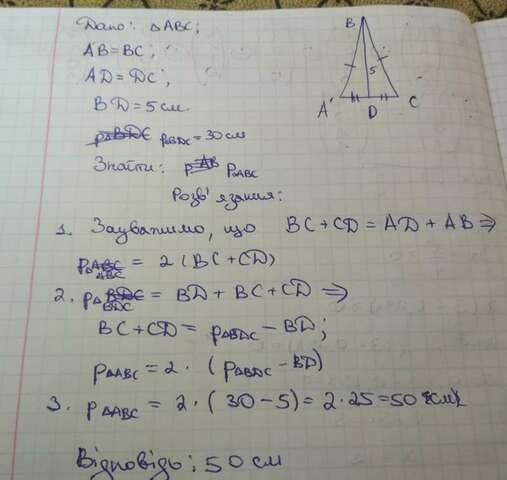 Дано: △ABC;
AB=BC;
AD=DC;
BD=5 см
P△BDC=30 см
Знайти: P△ABC
Розв'язання:
1. Зауважимо, що BC+CD=AD+AB⇒
P△ABC=2(BC+CD)
2. P△BDC=BD+BC+CD⇒
BC+CD=P△BDC-BD;
P△ABC=2·(P△BDC-BD)
3. P△ABC=2·(30-5)=2·25=50 (см)
Відповідь: 50 см
B
5
A
D
C